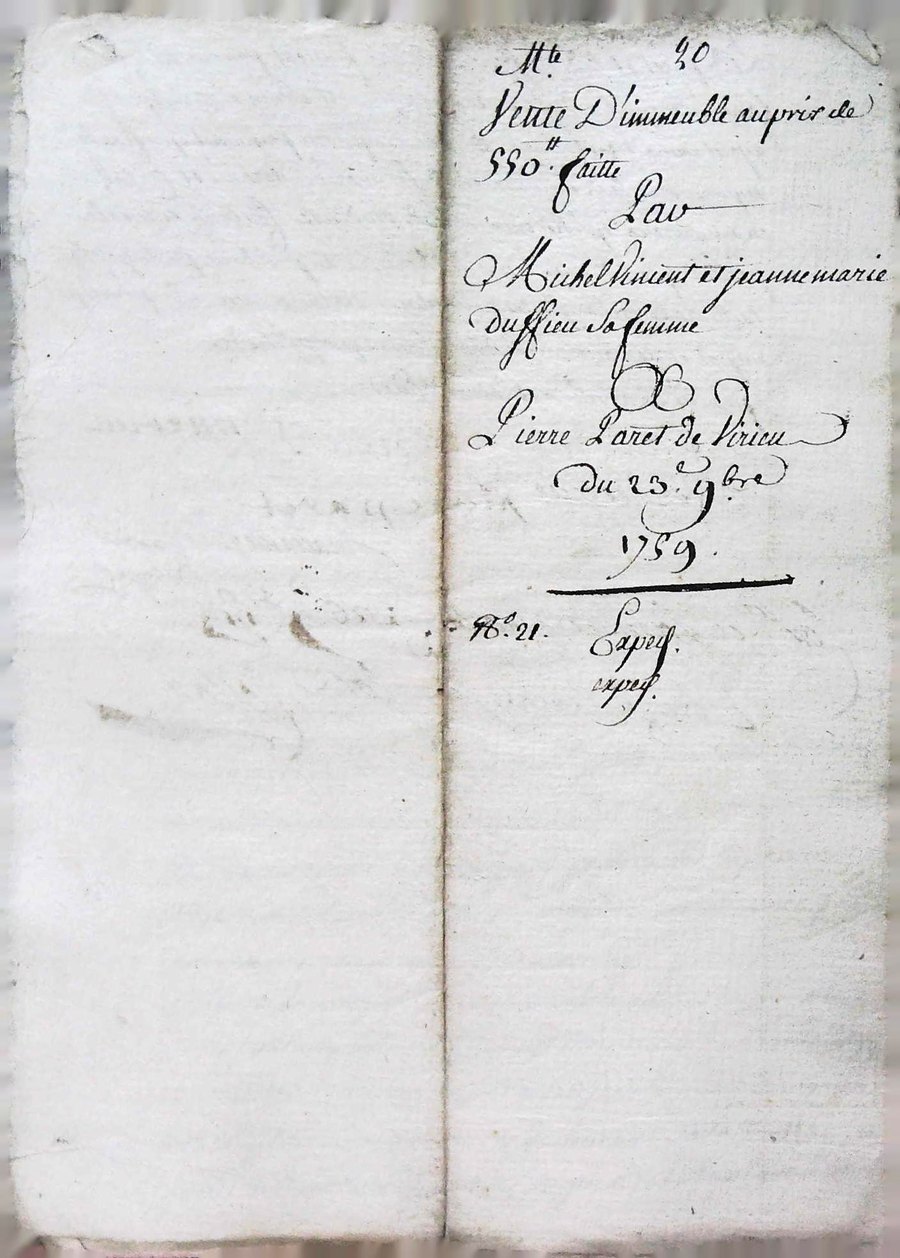 Mte. 20
Vente D'immeuble au prix de
550 ₶. faitte
Par
Michel Vincent et jeanne marie
Duffieu Sa femme
A
Pierre Paret de Virieu
Du 23e. 9bre
1759.
No. 21. Exped.
exped.